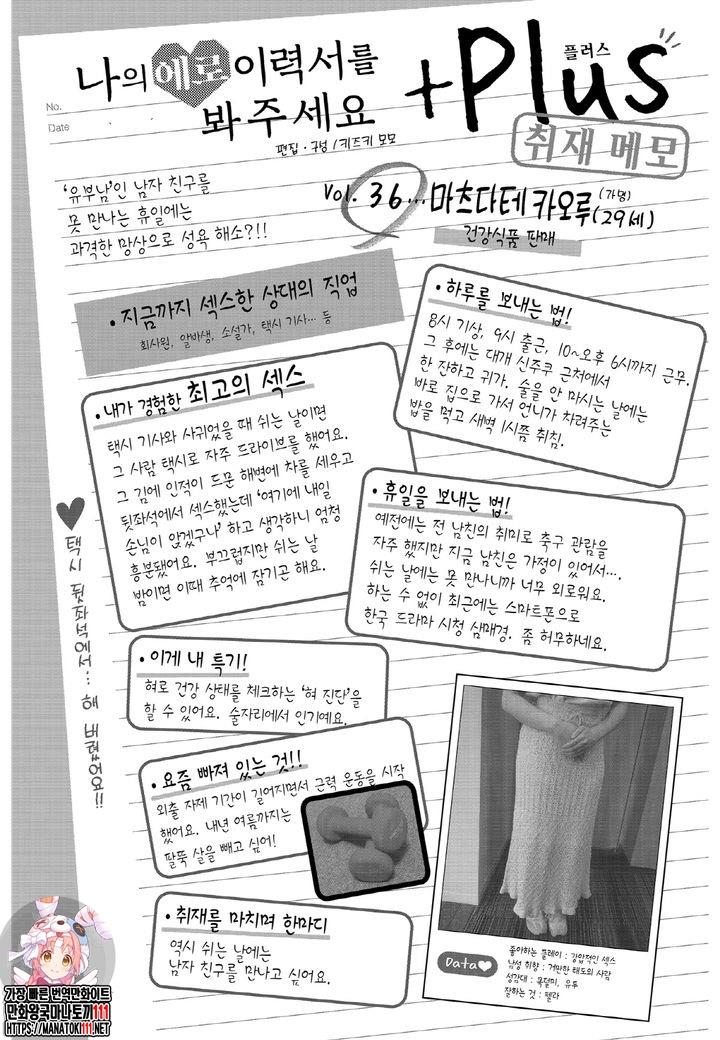 No.
Date
나의 에로 이력서를
봐 주세요
+Plus
플러스
취재 메모
편집·구성 / 키즈키 모모
'유부남'인 남자 친구를
못 만나는 휴일에는
과격한 망상으로 성욕 해소?!!
Vol. 36...마츠다테 카오루(29세)
(가명)
건강식품 판매
• 지금까지 섹스한 상대의 직업
회사원, 알바생, 소설가, 택시 기사... 등
• 하루를 보내는 법!
8시 기상, 9시 출근, 10~오후 6시까지 근무.
그 후에는 대개 신주쿠 근처에서
한 잔하고 귀가. 술을 안 마시는 날에는
바로 집으로 가서 언니가 차려주는
밥을 먹고 새벽 1시쯤 취침.
• 내가 경험한 최고의 섹스
택시 기사와 사귀었을 때 쉬는 날이면
그 사람 택시로 자주 드라이브를 했어요.
그 김에 인적이 드문 해변에 차를 세우고
뒷좌석에서 섹스했는데 '여기에 내일
손님이 앉겠구나' 하고 생각하니 엄청
흥분됐어요. 부끄럽지만 쉬는 날
밤이면 이때 추억에 잠기곤 해요.
• 휴일을 보내는 법!
예전에는 전 남친의 취미로 축구 관람을
자주 했지만 지금 남친은 가정이 있어서....
쉬는 날에는 못 만나니까 너무 외로워요.
하는 수 없이 최근에는 스마트폰으로
한국 드라마 시청 삼매경. 좀 허무하네요.
♥ 택시 뒷좌석에서... 해 버렸어요!!
• 이게 내 특기!
혀로 건강 상태를 체크하는 '혀 진단'을
할 수 있어요. 술자리에서 인기예요.
• 요즘 빠져 있는 것!!
외출 자제 기간이 길어지면서 근력 운동을 시작
했어요. 내년 여름까지는
팔뚝 살을 빼고 싶어!
• 취재를 마치며 한마디
역시 쉬는 날에는
남자 친구를 만나고 싶어요.
Data♥
좋아하는 플레이 : 강압적인 섹스
남성 취향 : 거만한 태도의 사람
성감대 : 목덜미, 유두
잘하는 것 : 펠라
가장 빠른 번역만화이트
만화왕국마나토끼111
HTTPS://MANATOKI111.NET